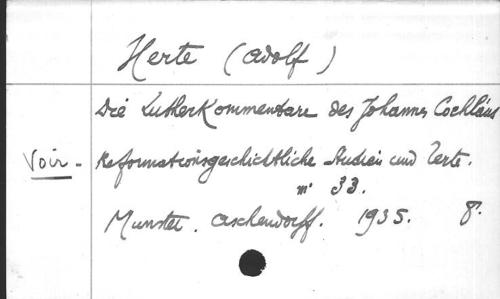 Herte (Adolf)
Die Lutherkommentare des Johannes Cochläus
Voir - Reformationsgeschichtliche Studien und Texte.
n° 33.
Munster. Aschendorff. 1935. 8°.